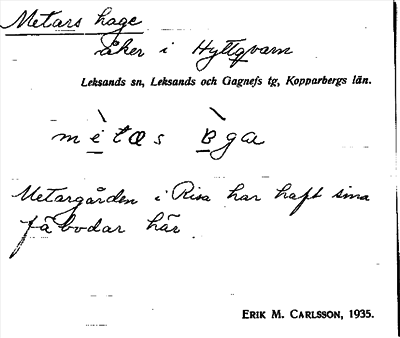 Metars hage
åker i Hyttqvarn
Leksands sn, Leksands och Gagnefs tg, Kopparbergs län.
Metargården i Risa har haft sina
fäbodar här
ERIK M. CARLSSON, 1935.